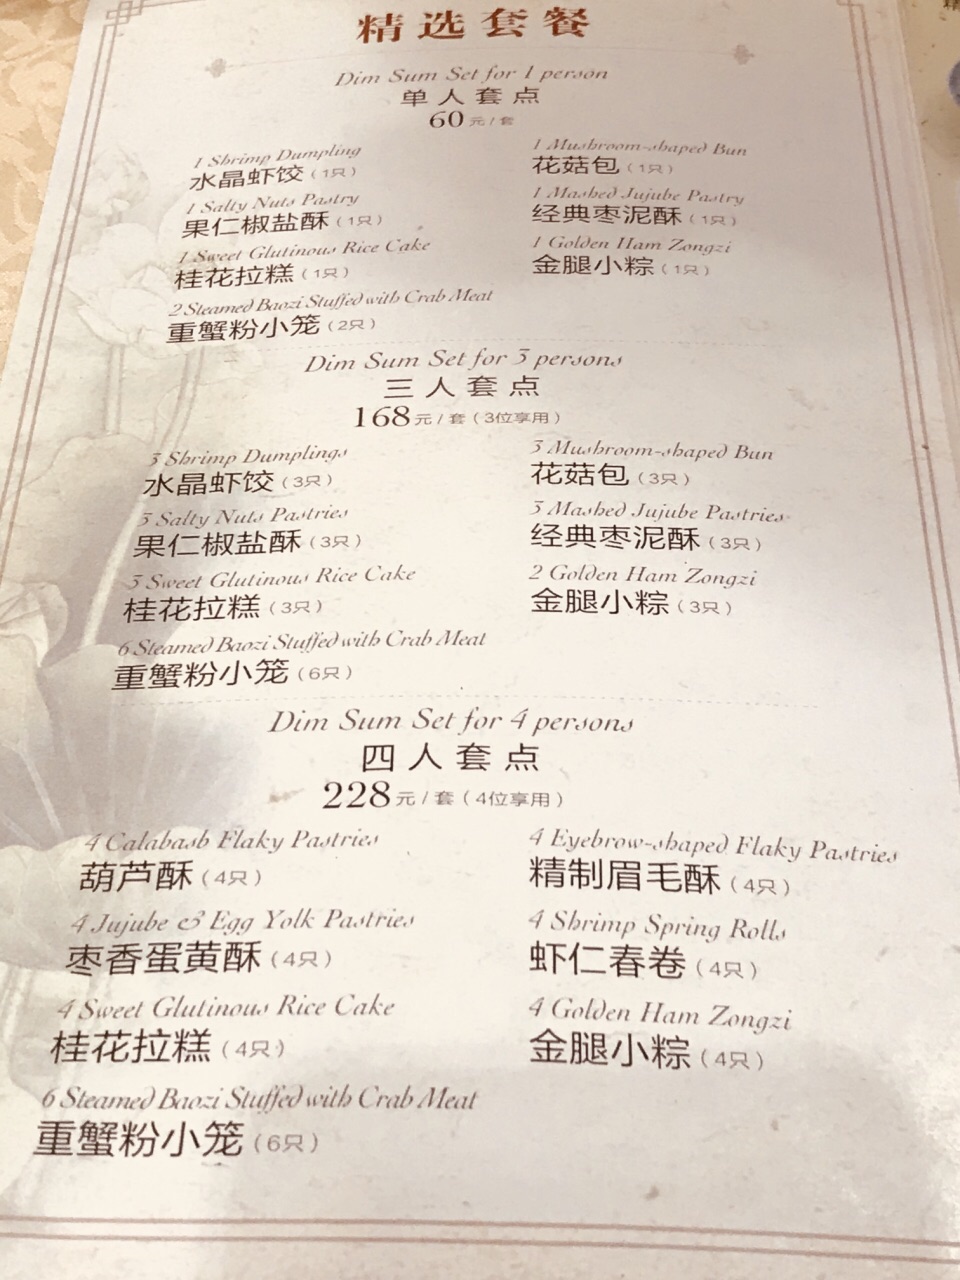 精选套餐
Dim Sum Set for 1 person
单人套点
60元/套
1 Shrimp Dumpling
水晶虾饺（1只）
1 Mushroom-shaped Bun
花菇包（1只）
1 Salty Nuts Pastry
果仁椒盐酥（1只）
1 Mashed Jujube Pastry
经典枣泥酥（1只）
1 Sweet Glutinous Rice Cake
桂花拉糕（1只）
1 Golden Ham Zongzi
金腿小粽（1只）
2 Steamed Baozi Stuffed with Crab Meat
重蟹粉小笼（2只）
Dim Sum Set for 3 persons
三人套点
168元/套（3位享用）
3 Shrimp Dumplings
水晶虾饺（3只）
3 Mushroom-shaped Bun
花菇包（3只）
3 Salty Nuts Pastries
果仁椒盐酥（3只）
3 Mashed Jujube Pastries
经典枣泥酥（3只）
3 Sweet Glutinous Rice Cake
桂花拉糕（3只）
2 Golden Ham Zongzi
金腿小粽（3只）
6 Steamed Baozi Stuffed with Crab Meat
重蟹粉小笼（6只）
Dim Sum Set for 4 persons
四人套点
228元/套（4位享用）
4 Calabash Flaky Pastries
葫芦酥（4只）
4 Eyebrow-shaped Flaky Pastries
精制眉毛酥（4只）
4 Jujube & Egg Yolk Pastries
枣香蛋黄酥（4只）
4 Shrimp Spring Rolls
虾仁春卷（4只）
4 Sweet Glutinous Rice Cake
桂花拉糕（4只）
4 Golden Ham Zongzi
金腿小粽（4只）
6 Steamed Baozi Stuffed with Crab Meat
重蟹粉小笼（6只）